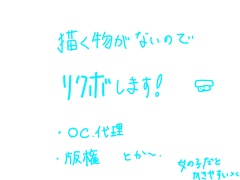 描く物がないので
リクボします!
・OC.代理
・版権 とか〜.
女の子だと
かきやすい>⩊<